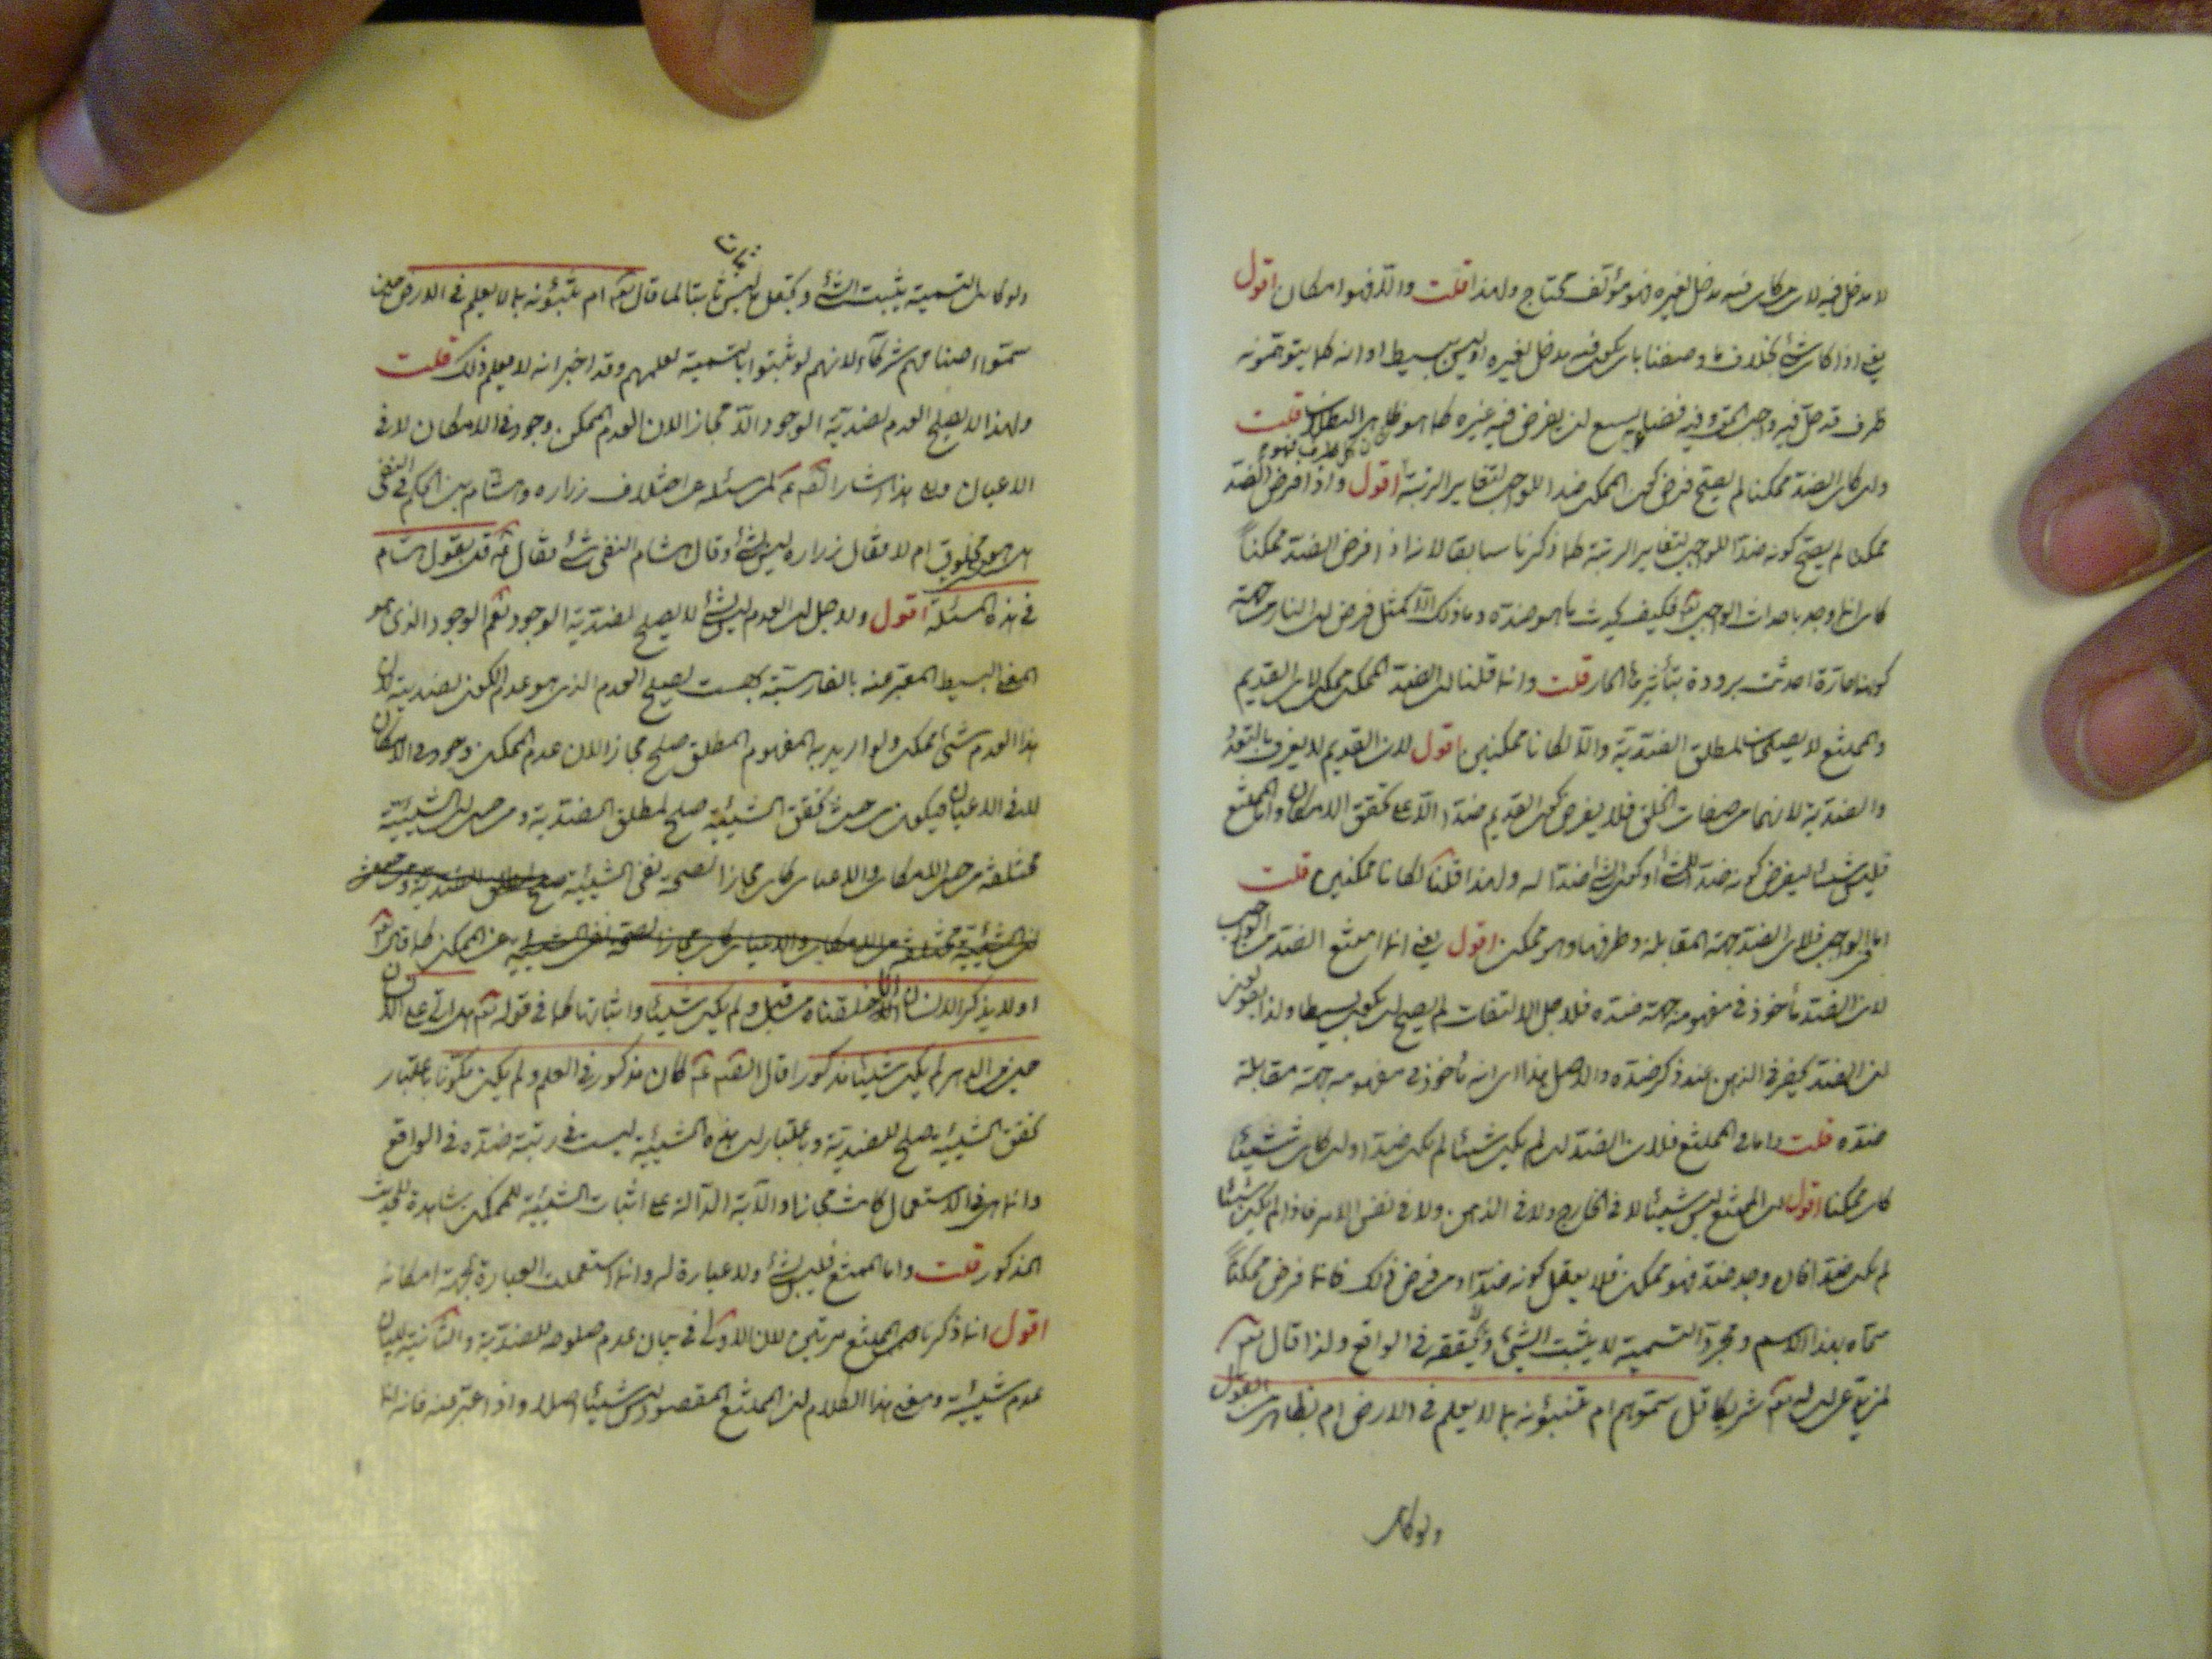 لا مدخل فيه لان من كان فيه مدخل لغيره فهو مؤلف محتاج ولهذا قلت والا فهو امكان اقول
يعني اذا كان شئ بخلاف ما وصفنا بان يكون فيه مدخل لغيره او ليس ببسيط او انه كما يتوهمونه
ظرف قد حل فيه واجب الحق وفيه فضاء يسع لان يفرض فيه غيره كما هو ظاهر البطلان قلت
وان كان الضد ممكنا لم يصح فرض كون الممكن ضدا للواجب لتغاير الرتبة اقول واذا فرض الضد
ممكنا لم يصح كونه ضدا للواجب لتغاير الرتبة كما ذكرنا سابقا لانه اذ افرض الضد ممكناً
كان انما وجد باحداث الواجب تعا فكيف يحدث ما هو ضده وما ذلك الا كمثل فرض ان النار من جهة
كونها حارة احدثت برودة بتأثيرها الحار قلت وانما قلنا ان الضد الممكن ممكن لان القديم
والممتنع لا يصلحان لمطلق الضدية والا لكانا ممكنين اقول لان القديم لا يعرف بالتعدد
والضدية لانهما من صفات الخلق فلا يفرض كون القديم ضدا الا على تحقق الامكان واما الممتنع
فليس شيئا ليفرض كونه ضدا للشئ او كون الشئ ضدا له ولهذا قلنا لكانا ممكنين قلت
اما في الواجب فلان الضد جهة المقابلة وطرفها وهو ممكن اقول يعني انما امتنع الضد من الواجب
لان الضد مأخوذ في مفهومه جهة ضده فلاجل الالتفات لم يصح ان يكون بسيطا ولذا يقولون
ان الضد يحضر في الذهن عند ذكر ضده والاصل بهذا اى انه مأخوذ في مفهومه جهة مقابلة
ضده قلت واما في الممتنع فلان الضد ان لم يكن شيئا لم يكن ضدا وان كان شيئا
كان ممكنا اقول ان الممتنع ليس شيئا لا في الخارج ولا في الذهن ولا في نفس الامر فاذا لم يكن شيئا
لم يكن ضدا فان وجد ضد فهو ممكن فلا يعقل كونه ضدا ومن فرض ذلك فانما فرض ممكناً
سماه بهذا الاسم ومجرد التسمية لا يثبت الشئ ولا يحققه في الواقع ولذا قال تعا
لمن يدعى ان له تعا شريكا قل سموهم ام تنبؤنه بما لا يعلم في الارض ام بظاهر من القول
ولو كان
ولو كان التسمية يثبت الشئ ويجعل ما ليس ثابت ثابتا لما قال تعا ام تنبؤنه بما لا يعلم في الارض حين
سموا اصنامهم شركاء لانهم لو ثبتوا بالتسمية لعلمهم وقد اخبر انه لا يعلم ذلك قلت
ولهذا لا يصلح العدم لضدية الوجود الا مجازا لان العدم الممكن وجود في الامكان لا في
الاعيان والى هذا اشار الصم عم لمن سئله عن اختلاف زراره وهشام بن الحكم في النفى
هل هو مخلوق ام لا فقال زراره ليس بشئ وقال هشام النفى شئ فقال عم قل بقول هشام
في هذه المسئلة اقول ولاجل ان العدم ليس بشئ لا يصلح لضدية الوجود نعم الوجود الذى هو
المعنى البسيط المعبر عنه بالفارسية بهست يصلح العدم الذى هو عدم الكون لضديته لان
هذا العدم شئ ممكن ولو اريد به المفهوم المطلق صلح مجازا لان عدم الممكن وجود في الامكان
لا في الاعيان فيكون من حيث تحقق الشيئية صلح لمطلق الضدية ومن حيث ان الشيئية
مختلفة من حيث الامكان والاعيان كان مجازا لصحة نفى الشيئية صلح لمطلق الضدية ومن حيث
ان الشيئية مختلفة من الامكان والاعيان كان مجازا لصحة نفى الشيئية عن الممكن كما قال تعا
اولا يذكر الانسان انا خلقناه من قبل ولم يكن شيئا واثباتها كما في قوله تعا هل اتى على الانسان
حين من الدهر لم يكن شيئا مذكورا قال الصم عم كان مذكورا في العلم ولم يكن مكونا باعتبار
تحقق الشيئية صلح للضدية وباعتبار ان هذه الشيئية ليست في رتبة ضده في الواقع
وانما هى في الاستعمال كانت مجازا والآية الدالة على اثبات الشيئية للممكن بشاهدة الحديث
المذكور قلت واما الممتنع فليس بشئ ولا عبارة له وانما استعملت العبارة لجهة امكانه
اقول انما ذكرنا الممتنع مرتين لان الاولى في بيان عدم صلوحه للضدية والثانية لبيان
عدم شيئية ومعنى هذا الكلام ان الممتنع المقصود ليس شيئا اصلا واذا عبر عنه فانه انما